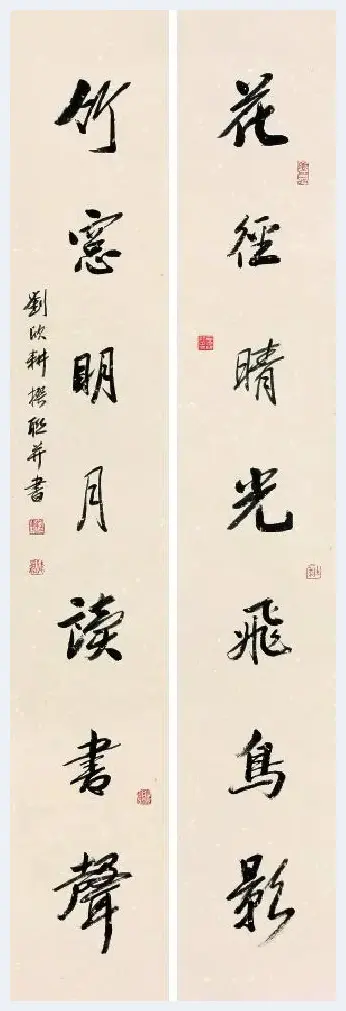 花徑晴光飛鳥影
竹窓明月讀書聲
劉欣耕撰聯并書